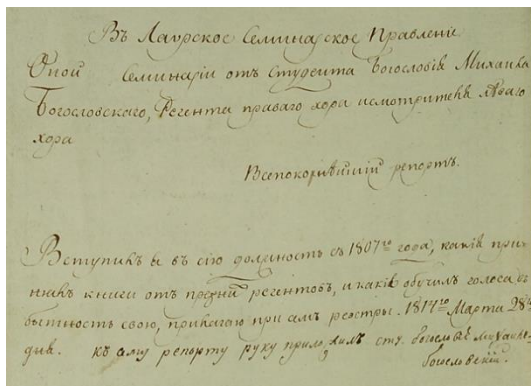 Въ Лаурское Семинарское Правленіе
Оной Семинаріи отъ студента Богословія Михаила
Богословскаго, Регента праваго хора и смотрителя лѣваго
хора
Всепокорнѣйшій репортъ.
Вступивъ я въ сію должность съ 1807го года, какія при-
нялъ книги отъ регентовъ, и какія обучилъ голоса въ
бытность свою, прилагаю при семъ реэстры. 1811го Марта 28
дня. къ сему репорту руку приложилъ сту. богословія Михаилъ
богословскій.